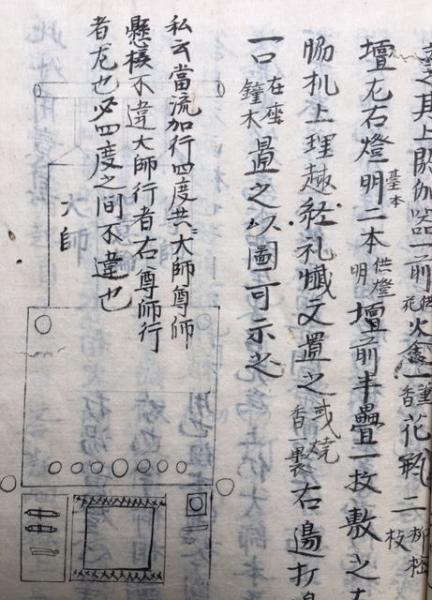 之其上閼伽器一前供花火舎一香花瓶二
壇左右燈明二本臺本供燈明壇前半疊一枚敷之
脇机上理趣経礼懺文置之或焼香一裹右邊打
一口在座鐘木置之以圖可示之
私云當流加行四度共大師尊師
懸様不違大師行者右尊師行
者左也必四度之間不違也
大師